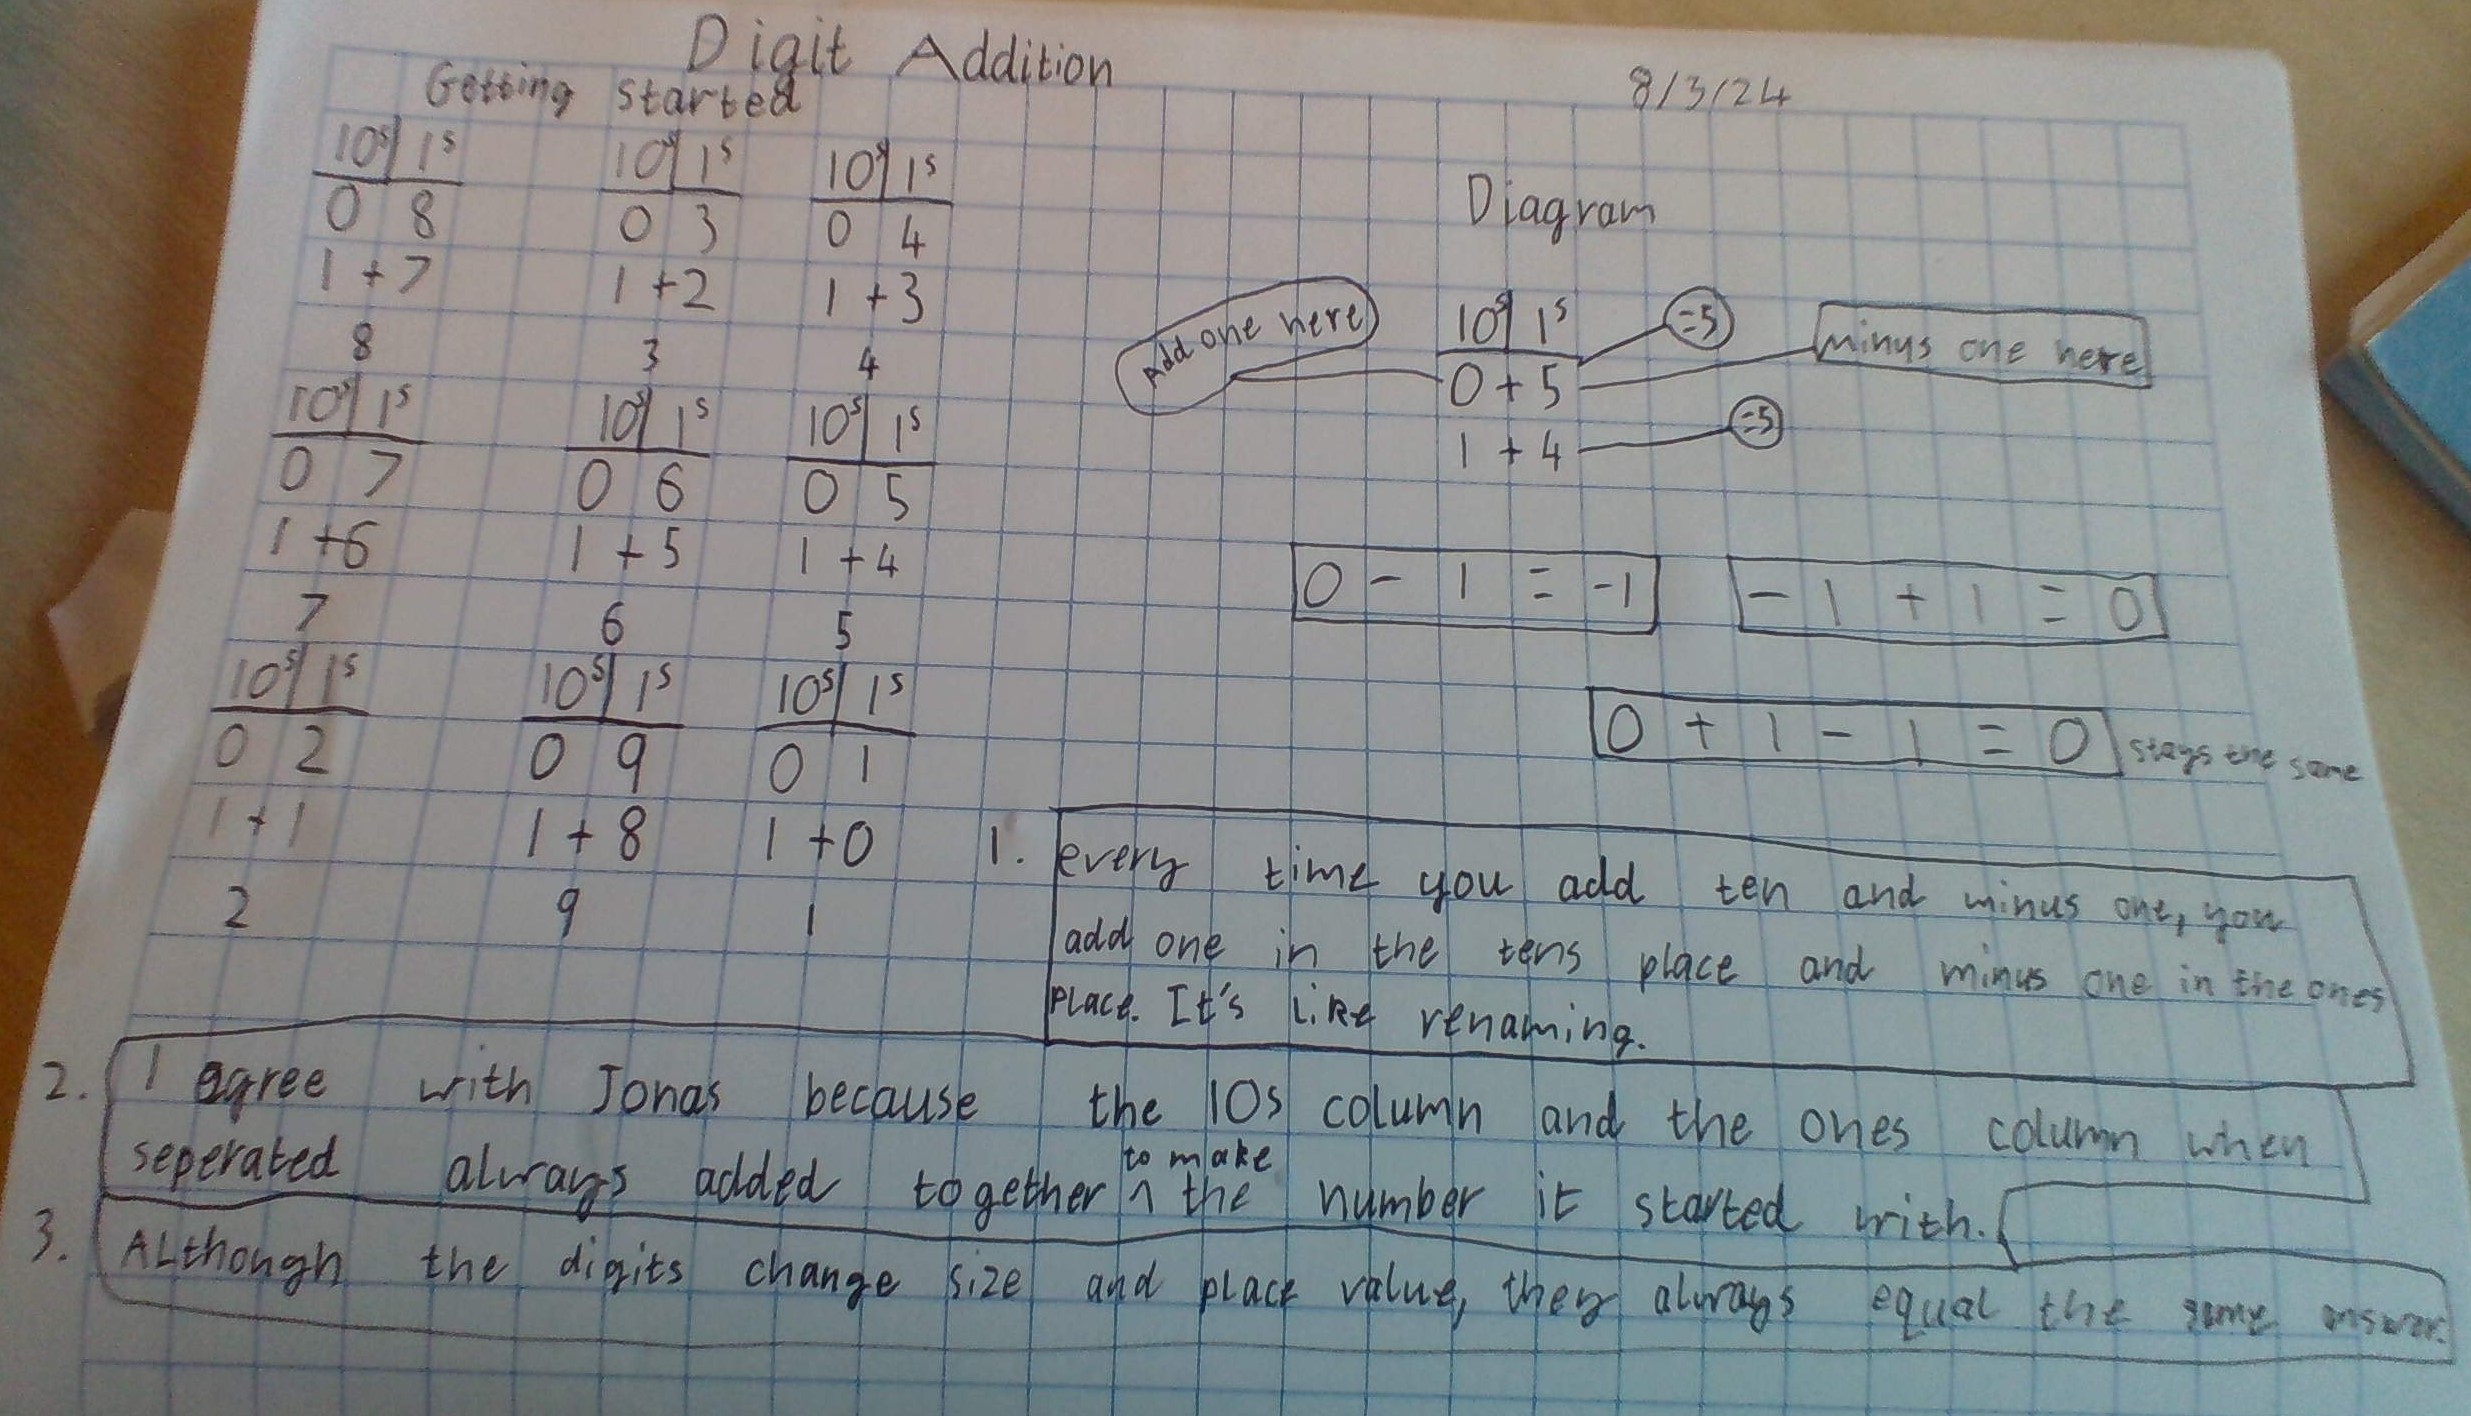 Digit Addition
Getting started
8/3/24
10s 1s
0 8
1 + 7
8
10s 1s
0 3
1 + 2
3
10s 1s
0 4
1 + 3
4
10s 1s
0 7
1 + 6
7
10s 1s
0 6
1 + 5
6
10s 1s
0 5
1 + 4
5
10s 1s
0 2
1 + 1
2
10s 1s
0 9
1 + 8
9
10s 1s
0 1
1 + 0
1
Diagram
Add one here
10s 1s
=5
minus one here
0 + 5
1 + 4
=5
0 - 1 = -1
- 1 + 1 = 0
0 + 1 - 1 = 0 stays the same
1. every time you add ten and minus one, you
add one in the tens place and minus one in the ones
place. It's like renaming.
2. I agree with Jonas because the 10s column and the ones column when
seperated always added together ^ to make the number it started with.
3. Although the digits change size and place value, they always equal the same answer.